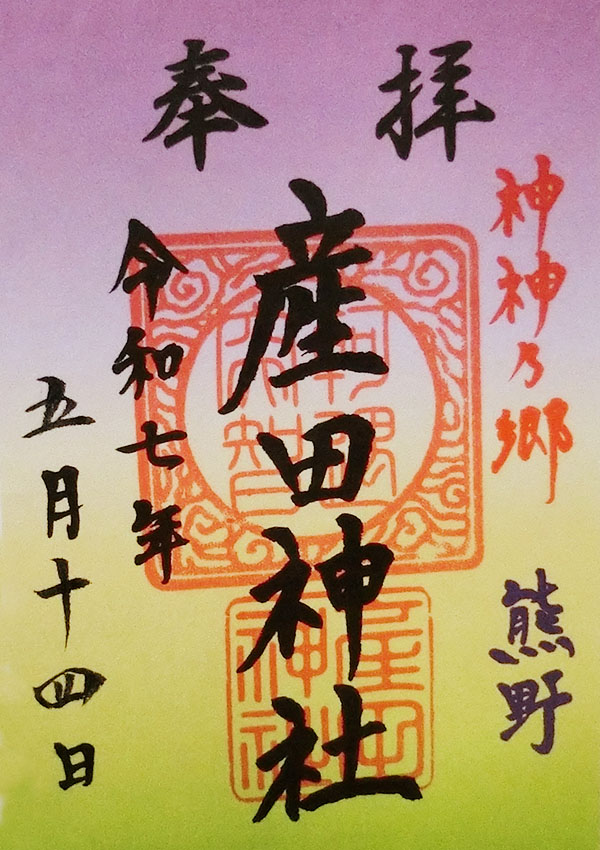 奉拝
神神乃郷
熊野
産田神社
令和七年
五月十四日
産田
神社